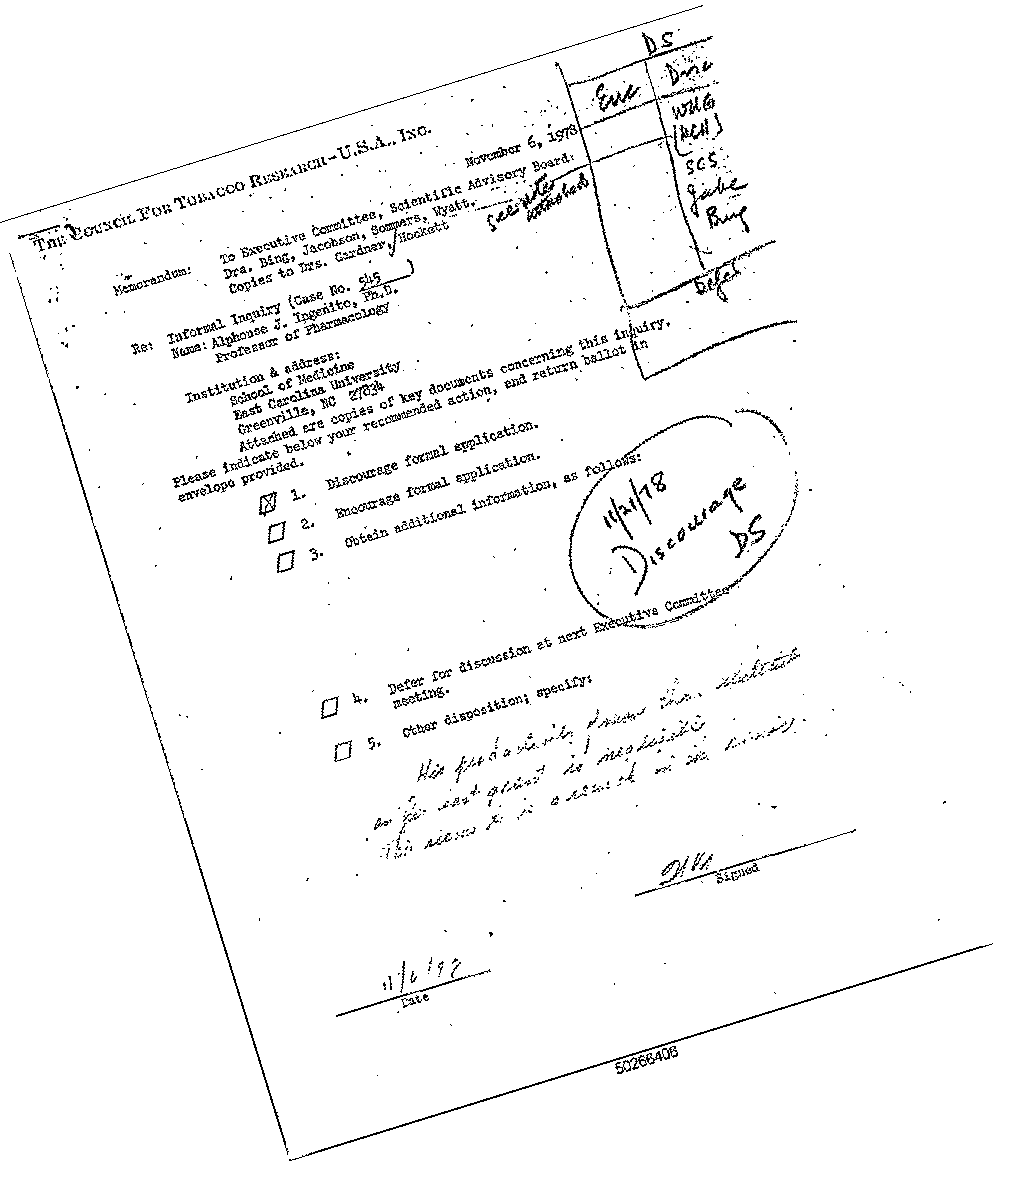 DS
Enc
WHG
(RCH)
SCS
Jacke
Bing
Defer
THE COUNCIL FOR TOBACCO RESEARCH-U.S.A., INC.
November 6, 1978
Memorandum: To Executive Committee, Scientific Advisory Board:
Drs. Bing, Jacobson, Sommers, Wyatt.
Copies to Drs. Gardner, Hockett
see note
attached
Re: Informal Inquiry (Case No. 545)
Name: Alphonse J. Ingenito, Ph.D.
Professor of Pharmacology
Institution & address:
School of Medicine
East Carolina University
Greenville, NC 27834
Attached are copies of key documents concerning this inquiry.
Please indicate below your recommended action, and return ballot in
envelope provided.
☒ 1. Discourage formal application.
☐ 2. Encourage formal application.
☐ 3. Obtain additional information, as follows:
11/21/78
Discourage
DS
☐ 4. Defer for discussion at next Executive Committee
meeting.
☐ 5. Other disposition; specify:
His productivity
grant is negligible
This seems to
Signed
Date
50266406